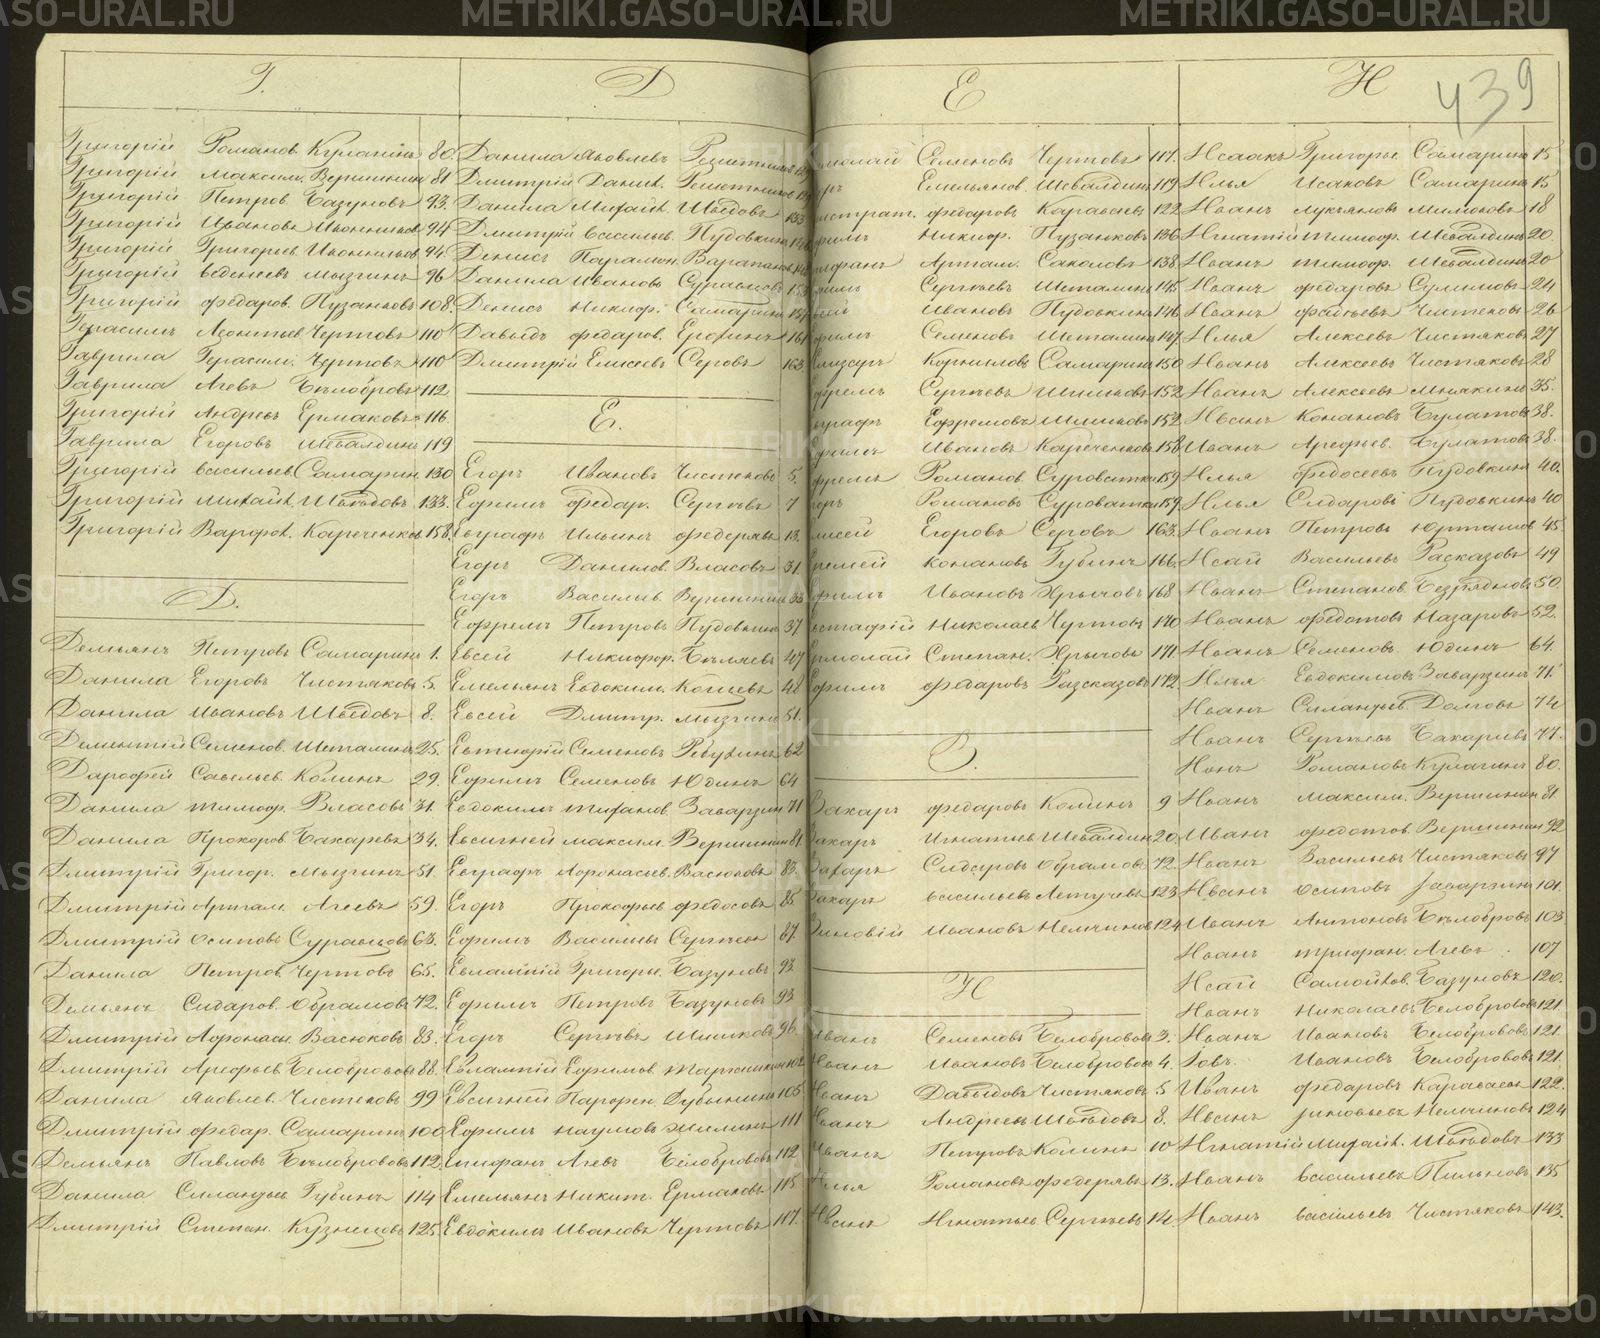 Г.
Григорій Романов. Кулагинъ 80.
Григорій Максим. Вершининъ 81
Григорій Петров. Базуновъ 93.
Григорій Ивановъ 94
Григорій Григорьев. 94.
Григорій Веденеевъ Мызгинъ 96
Григорій Федоров. Пузанковъ 108.
Герасимъ Леонтьев. Чертовъ 110
Гаврила Герасим. Чертовъ 110
Гаврила Агевъ Бѣлобровъ 112
Григорій Андреев Ермаковъ 116.
Гаврила Егоровъ Шевалдинъ 119
Григорій Васильев Самарин 130
Григорій Михайл. Шведовъ 133.
Григорій 158.
Д.
Демьянъ Петровъ Самаринъ 1.
Данила Егоровъ Чистяковъ 5.
Данила Ивановъ Шведовъ 8.
Дементій Семенов. 25.
Дарофей Савельев. Колинъ 29.
Данила Тимоф. Власовъ 31.
Данила Прохоров. Бакаревъ 34.
Дмитрій Григор. Мызгинъ 51.
Дмитрій Артам. Агеевъ 59.
Дмитрій Осиповъ 63.
Данила Петров. Чертовъ 65.
Демьянъ Сидаров. Обрамовъ 72.
Дмитрій Афонасьи. Васюковъ 83.
Дмитрій Арефьев. Белобровов 88.
Данила Яковлев. Чистяковъ 99
Дмитрій Федар. Самаринъ 100
Демьянъ Павловъ Бѣлобрововъ 112.
Данила Силантьев Губинъ 114
Дмитрій Степан. Кузнецовъ 125.
Д
Данила Яковлевъ
Дмитрій Данил.
Данила Михайл. Шведовъ 133
Дмитрій Васильев. Пудовкинъ
Денисъ Парамон.
Данила Ивановъ
Денисъ Никиф. Самаринъ
Давыдъ Федоров. 161
Дмитрій Елисеевъ Серовъ 163
Е.
Егоръ Ивановъ Чистяковъ 5.
Ефимъ Федар. Сергѣевъ 7
Евграфъ Ильинъ 13.
Егоръ Данилов. Власовъ 31.
Егоръ Василь. Вершининъ 33
Ефремъ Петровъ Пудовкинъ 37
Евсей Никифор. Бѣляевъ 47
Емельянъ Евдоким. 48
Евсей Дмитр. Мызгинъ 51.
Семеновъ 62
Ефимъ Семеновъ Юдинъ 64
Евдокимъ Заварзин 71
Евсигней Максим. Вершинин 81.
Евграфъ Афонасьев. Васюковъ 83.
Егоръ Прокофьев Федосовъ 85
Ефимъ Васильевъ Сергѣевъ 87
Евлампій Григорь. Базуновъ 93
Ефимъ Петровъ Базуновъ 93
Егоръ Сергѣевъ Шишковъ 96.
Евлампій Ефимов.
Евсигней Парфен. Дубынинъ 105
Ефимъ Наумовъ 111
Епифанъ Агевъ Белобрововъ 112
Емельянъ Никит. Ермаковъ 115
Евдокимъ Ивановъ Чертовъ 117.
Е
439
Семеновъ Чертовъ 117.
Емельянов. Шевалдинъ 119
Федаровъ Караваевъ 122
Никиф. Пузанковъ 136
Артам. Саколовъ 138
Сергѣевъ 145
Ивановъ Пудовкинъ 146
Семеновъ 147
Корниловъ Самаринъ 150
Сергѣевъ Шишковъ 152
Ефремовъ Шишковъ 152
Ивановъ 158
Романов. 159
Романовъ 159
Егоровъ Серовъ 163.
Конановъ Губинъ 166.
Ивановъ Хрычовъ 168
Николаев Чертовъ 170
Степан. Хрычовъ 171.
Федаровъ Разсказовъ 172.
З.
Захаръ Федаровъ Колинъ 9
Захаръ Игнатьев Шевалдин 20.
Захаръ Сидаровъ Обрамовъ 72.
Захаръ Васильевъ 123
Зиновій Ивановъ Немчинов 124
И
Иванъ Семеновъ Белобровов 3.
Иванъ Ивановъ Белобровов 4.
Иванъ Давыдовъ Чистяковъ 5
Иванъ Андреевъ Шведовъ 8.
Иванъ Петровъ Колинъ 10
Илья Романовъ 13.
Иванъ Игнатьев Сергѣевъ 14.
И
Исаакъ Григорье. Самаринъ 15
Илья Исаковъ Самаринъ 15
Иванъ Лукьяновъ 18
Игнатій Тимоф. Шевалдинъ 20.
Иванъ Тимоф. Шевалдинъ 20
Иванъ Федаровъ Сулимовъ 24
Иванъ Фадѣевъ Чистяковъ 26
Илья Алексевъ Чистяковъ 27
Иванъ Алексеевъ Чистяковъ 28
Иванъ Алексеевъ Мякинин 35.
Иванъ Конановъ Булатовъ 38.
Иванъ Арефьев. Булатовъ 38.
Илья Федосеевъ Пудовкинъ 40.
Илья Сидаровъ Пудовкинъ 40
Иванъ Петровъ Юрташовъ 45
Исай Васильевъ Расказовъ 49
Иванъ Степанов. 50.
Иванъ Федотовъ Назаровъ 52.
Иванъ Семеновъ Юдинъ 64.
Илья Евдокимовъ Заварзинъ 71.
Иванъ Силантьев. Долговъ 74
Иванъ Сергѣевъ Бакаревъ 77.
Романовъ Кулагинъ 80.
Иванъ Максим. Вершинин 81
Иванъ Федотов. Вершинин 92
Иванъ Васильевъ Чистяковъ 97
Иванъ Осиповъ Заварзинъ 101.
Иванъ Антоновъ Бѣлобровъ 103
Иванъ Трифан. Агевъ 107
Исай Самойлов. Базуновъ 120.
Иванъ Николаевъ Белобровов 121.
Иванъ Ивановъ Белобрововъ 121.
Іовъ. Ивановъ Белобрововъ 121
Иванъ Федаровъ Караваевъ 122.
Иванъ Зиновьевъ Немчиновъ 124
Игнатій Михайл. Шведовъ 133
Иванъ Васильевъ Пильновъ 135
Иванъ Васильевъ Чистяковъ 143.
METRIKI.GASO-URAL.RU